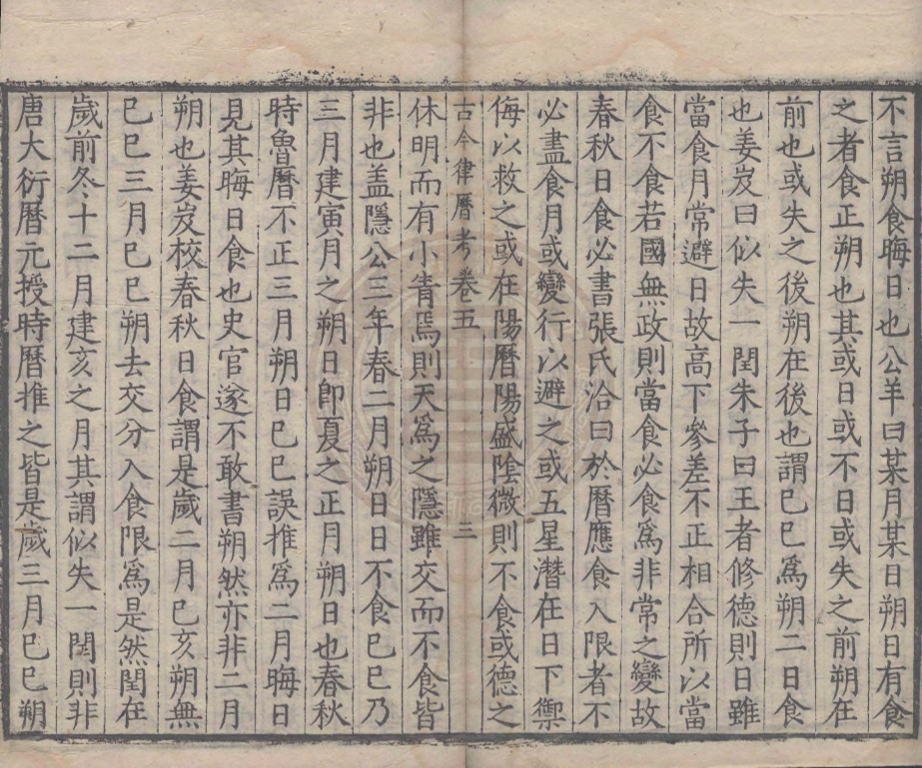 不言朔食晦日也公羊曰某月某日朔日有食
之者食正朔也其或日或不日或失之前朔在
前也或失之後朔在後也謂巳巳爲朔二日食
也姜岌曰似失一閏朱子曰王者修德則日雖
當食月常避日故高下參差不正相合所以當
食不食若國無政則當食必食爲非常之變故
春秋日食必書張氏洽曰於曆應食入限者不
必盡食月或變行以避之或五星潛在日下禦
侮以救之或在陽曆陽盛陰微則不食或德之
古今律曆考卷五 三
休明而有小眚焉則天爲之隱雖交而不食皆
非也盖隱公三年春二月朔日日不食巳巳乃
三月建寅月之朔日卽夏之正月朔日也春秋
時魯曆不正三月朔日巳巳誤推爲二月晦日
見其晦日食也史官遂不敢書朔然亦非二月
朔也姜岌校春秋日食謂是歲二月巳亥朔無
巳巳三月巳巳朔去交分入食限爲是然閏在
歲前冬十二月建亥之月其謂似失一閏則非
唐大衍曆元授時曆推之皆是歲三月巳巳朔